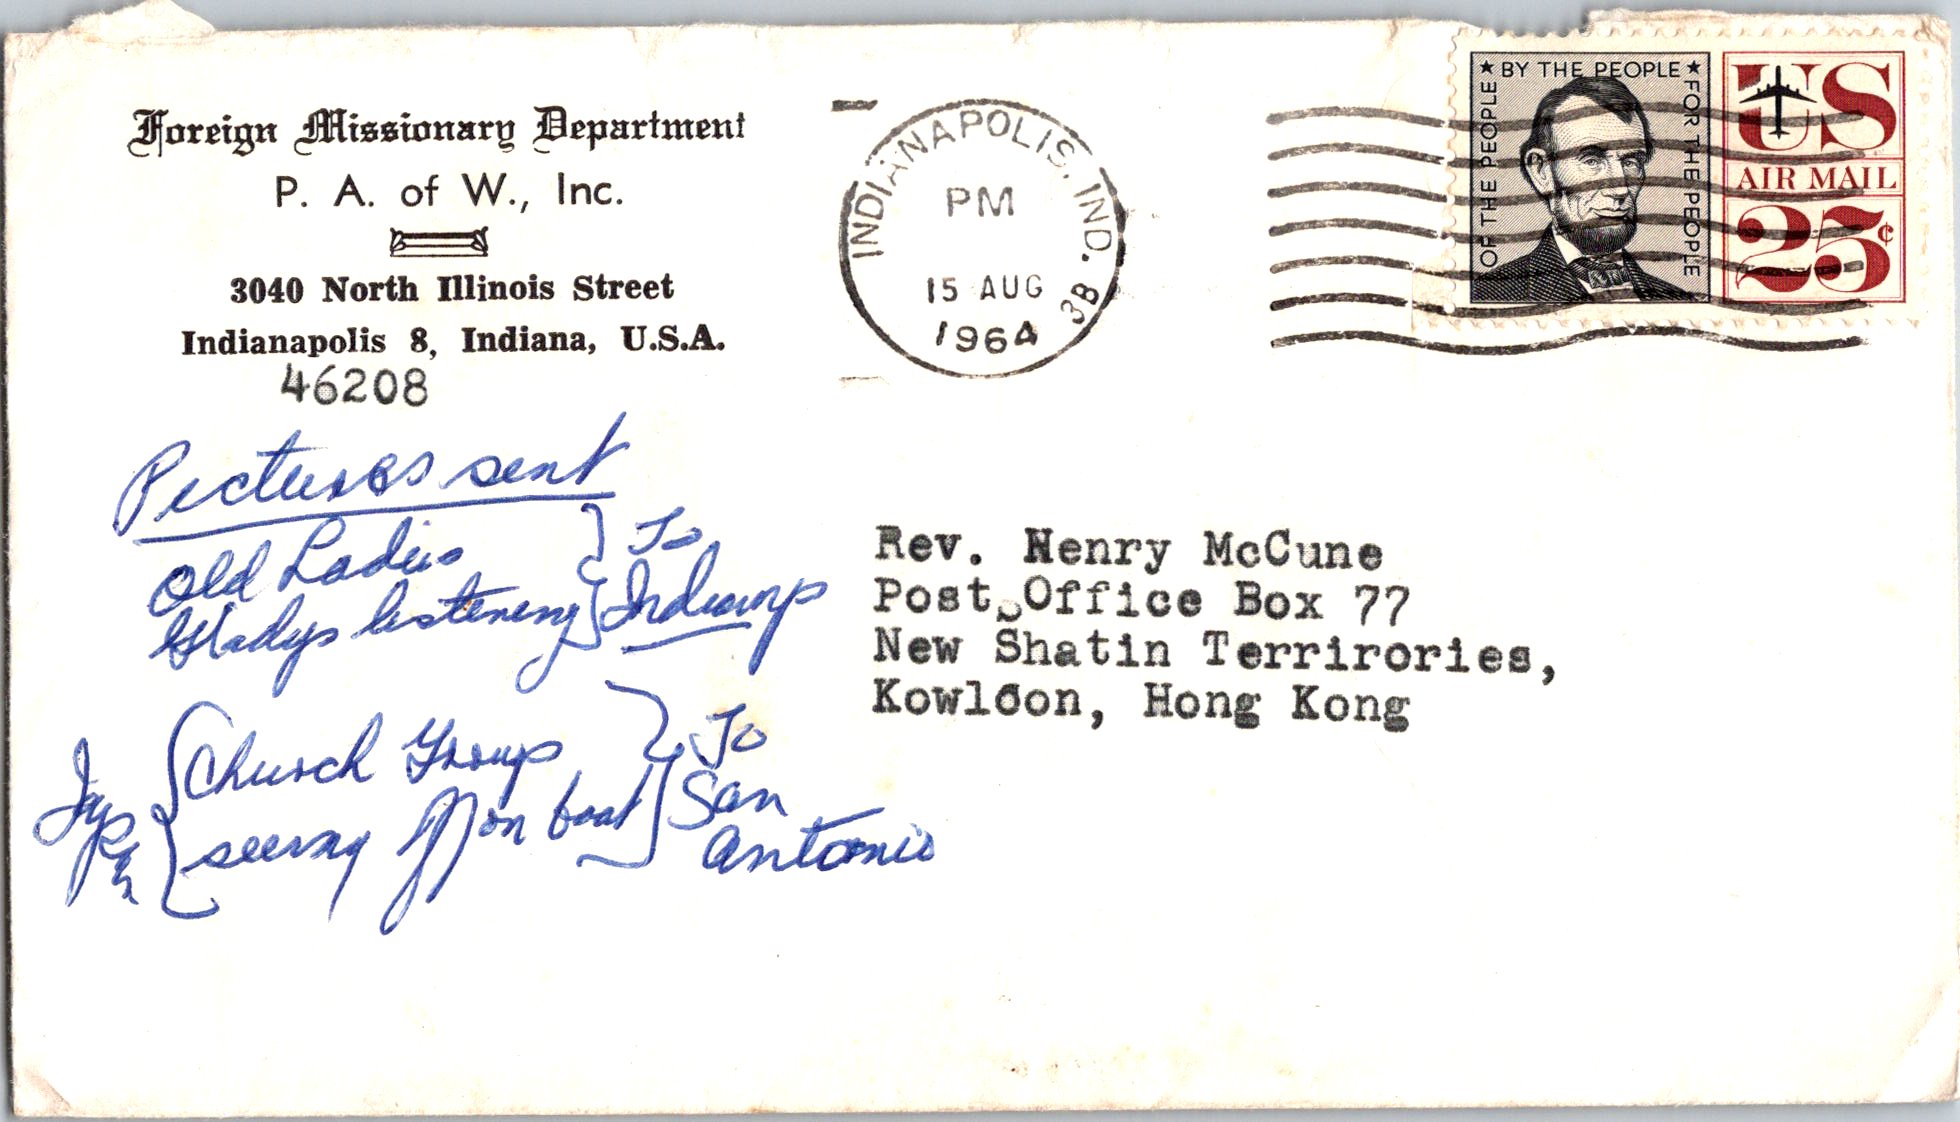 Foreign Missionary Department
P. A. of W., Inc.
3040 North Illinois Street
Indianapolis 8, Indiana, U.S.A.
46208
INDIANAPOLIS, IND.
PM
15 AUG
1964
3B
OF THE PEOPLE ★ BY THE PEOPLE ★ FOR THE PEOPLE
US
AIR MAIL
25¢
Pictures sent
Old Ladies
Gladys listening
To
Rev. Henry McCune
Post Office Box 77
New Shatin Terrirories,
Kowloon, Hong Kong
Church Group
on boat
To
San
Antonio